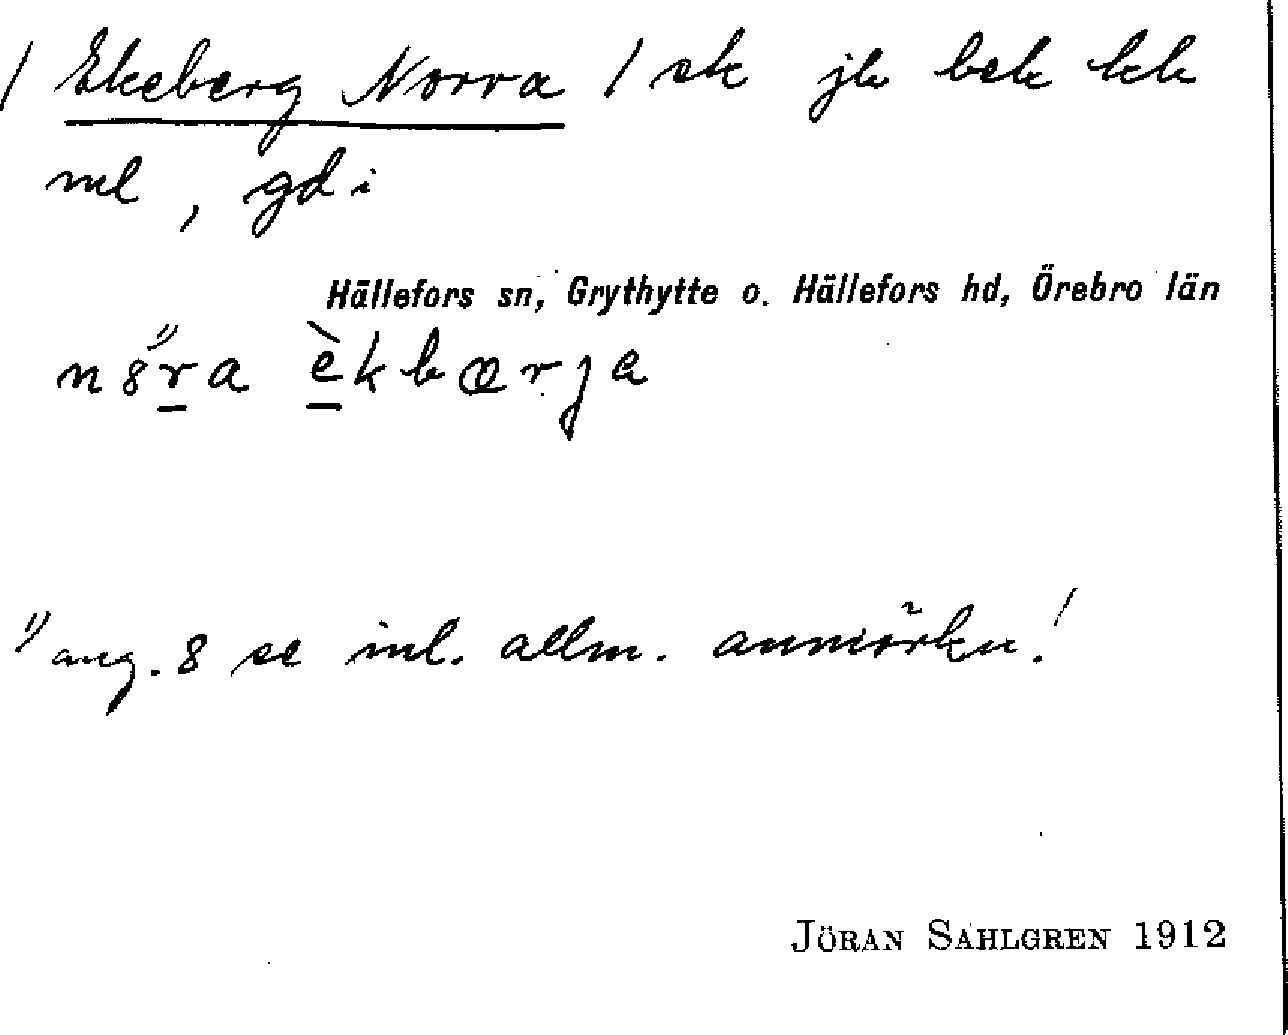 / Ekeberg Norra / sk jb bek kk
ml, gd i
Hällefors sn, Grythytte o. Hällefors hd, Örebro län
n8¹⁾ra èkbærja
¹⁾ ang. 8 se inl. allm. anmärkn.!
JÖRAN SAHLGREN 1912